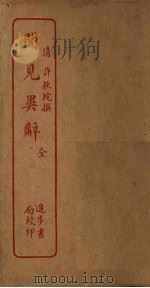 清 許秋垞撰
見異辭
全
進步書
局校印